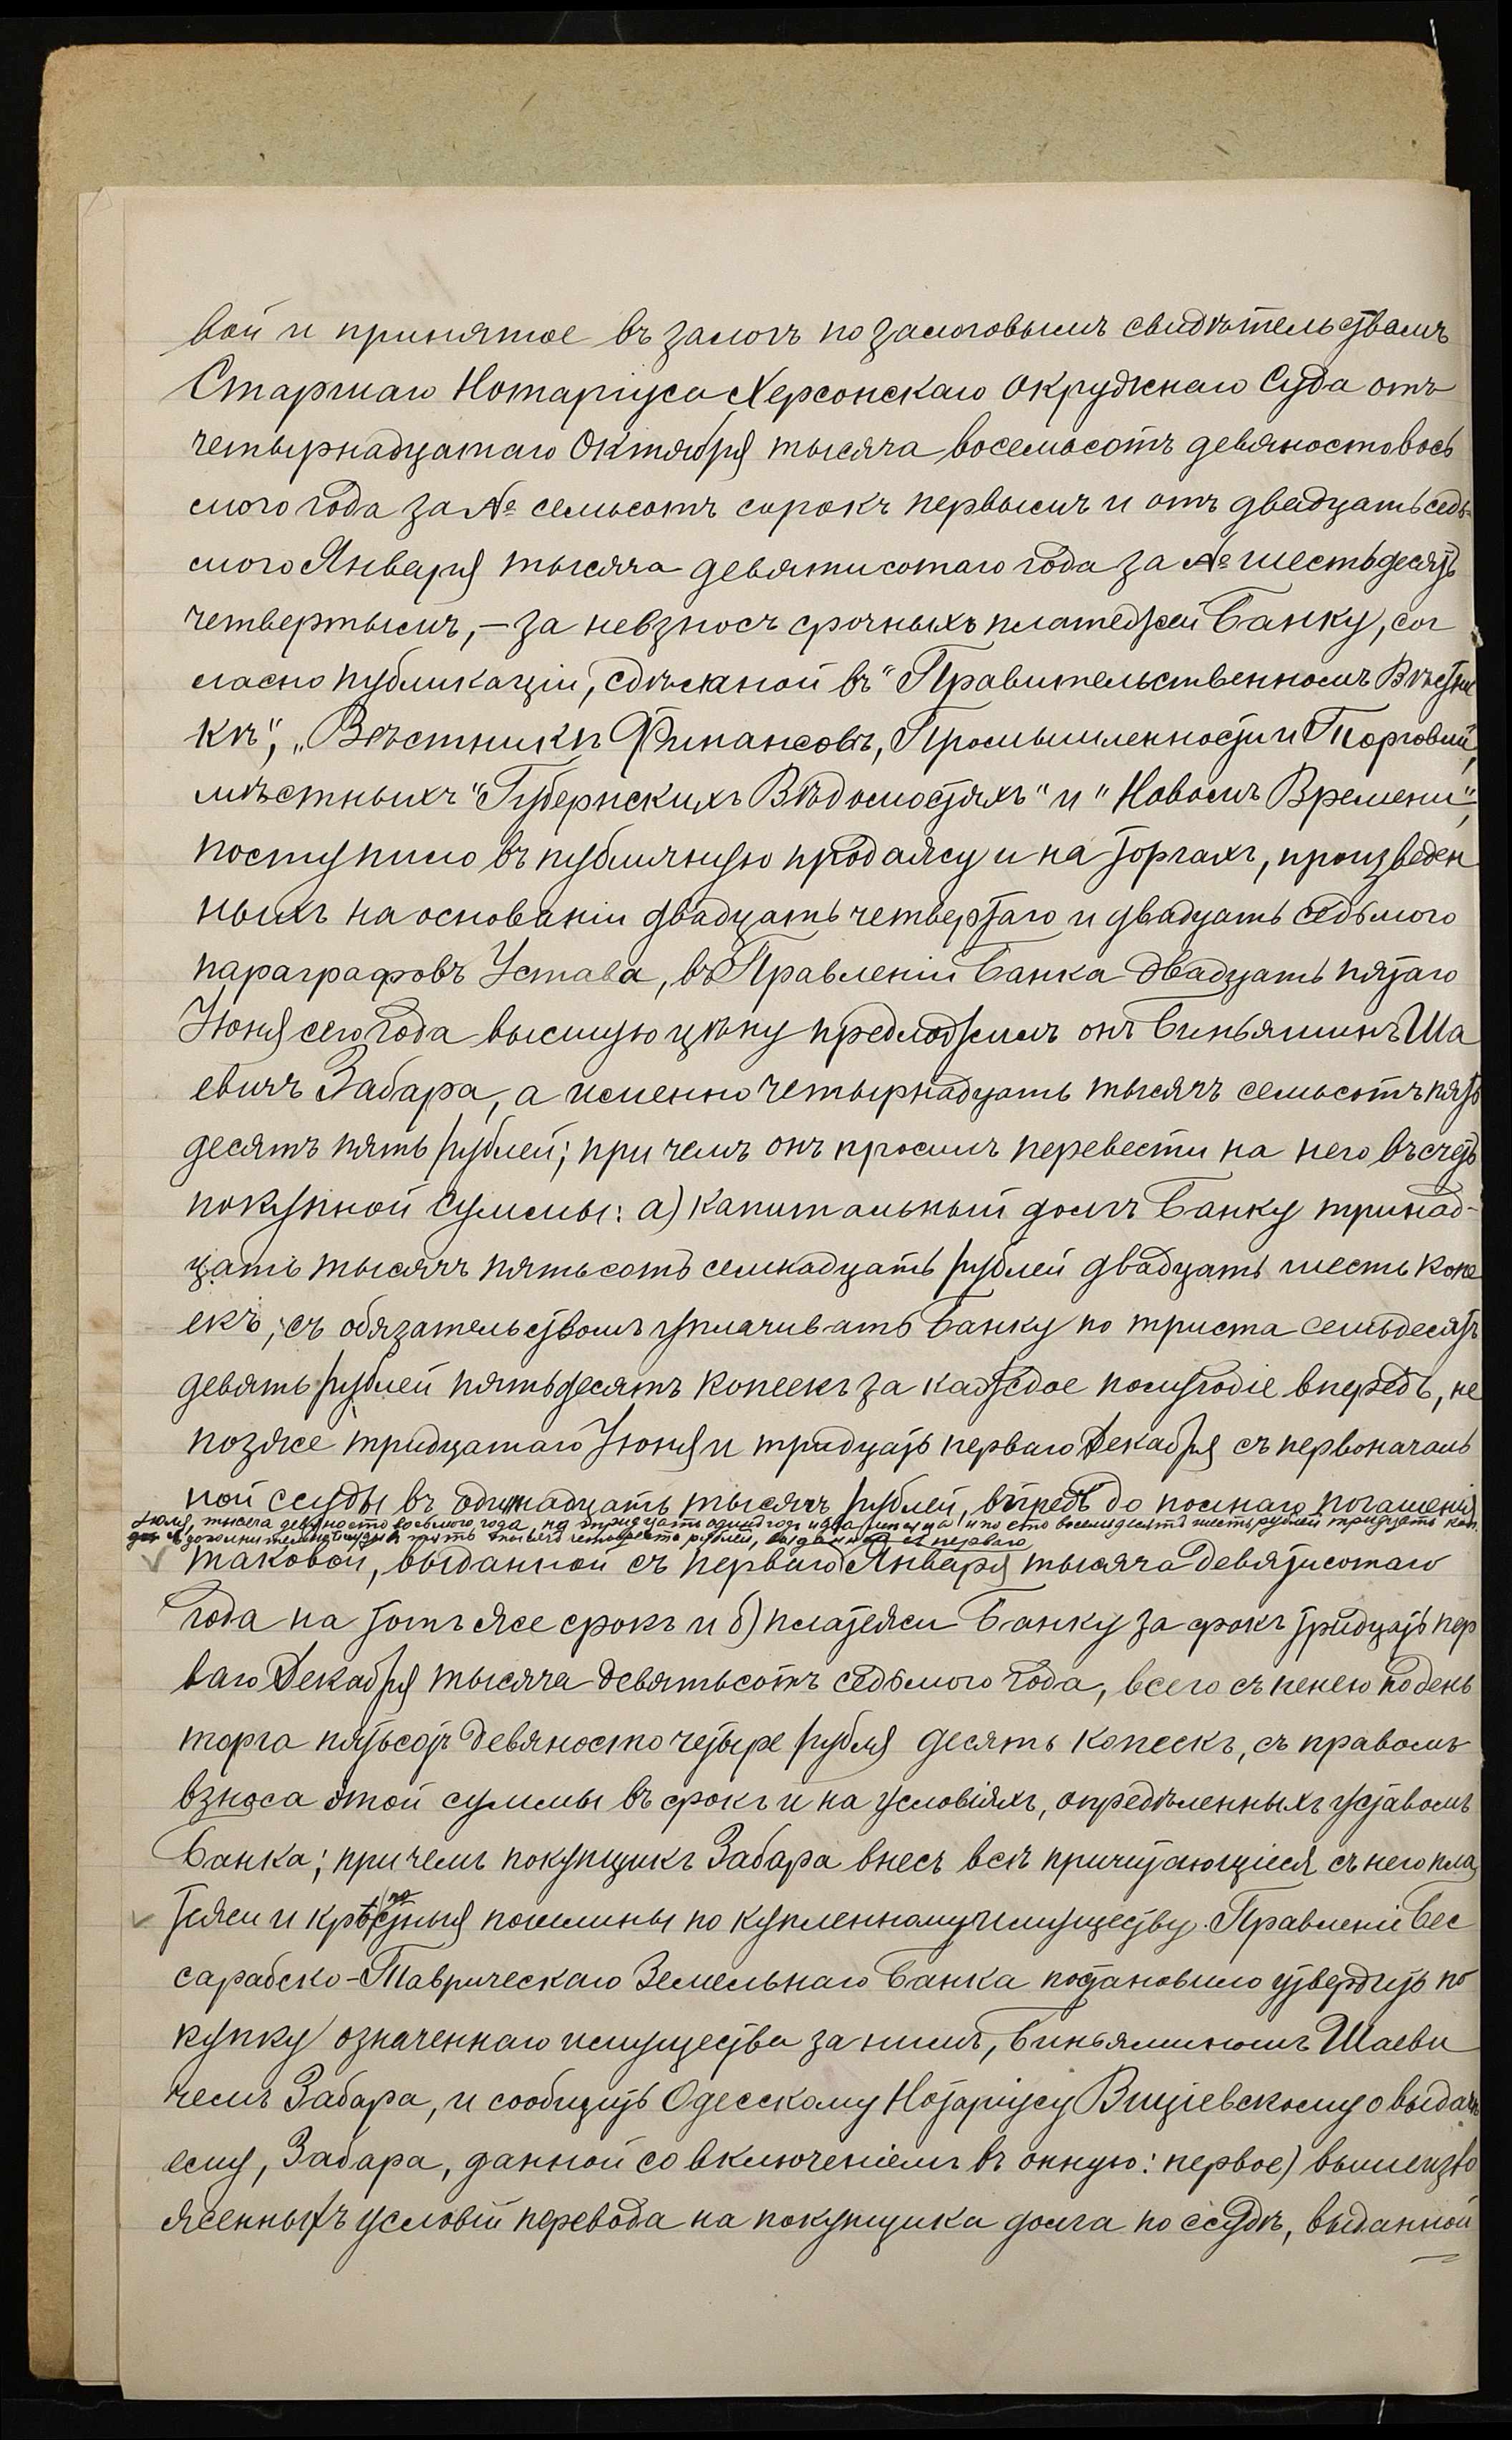 вой и принятое въ залогъ по залоговымъ свидѣтельствамъ
Старшаго Нотаріуса Херсонскаго Окружнаго Суда отъ
четырнадцатаго Октября тысяча восемьсотъ девяносто вось
мого года за № семьсотъ сорокъ первымъ и отъ двадцать седь-
мого Января тысяча девятисотаго года за № шестьдесятъ
четвертымъ,- за невзносъ срочныхъ платежей Банку, сог
ласно публикаціи, сдѣланной въ "Правительственномъ Вѣстни
кѣ", "Вѣстникѣ Финансовъ, Промышленности и Торговли",
мѣстныхъ "Губернскихъ Вѣдомостяхъ" и "Новомъ Времени",
поступило въ публичную продажу и на торгахъ, произведен
ныхъ на основаніи двадцать четвертаго и двадцать седьмого
параграфовъ Устава, въ Правленіи Банка двадцать пятаго
Іюня сего года высшую цѣну предложилъ онъ Биньяминъ Ша
евичъ Забара, а именно четырнадцать тысячъ семьсотъ пять
десятъ пять рублей; при чемъ онъ просилъ перевести на него въ счетъ
покупной суммы: а) капитальный долгъ Банку тринад-
цать тысячъ пятьсотъ семнадцать рублей двадцать шесть копе
екъ, съ обязательствомъ уплачивать Банку по триста семьдесятъ
девять рублей пятьдесятъ копеекъ за каждое полугодіе впередъ, не
позже тридцатаго Іюня и тридцать перваго Декабря съ первоначаль
ной ссуды въ одиннадцать тысячъ рублей, впредь до полнаго погашенія
Іюля, тысяча девяносто восьмого года, на тридцать одинъ годъ и два мѣсяца и по сто восемьдесятъ шесть рублей тридцать коп.
съ дополнительной ссуды въ пять тысячъ четыреста рублей, выданной съ перваго
таковой, выданной съ перваго Января тысяча девятисотаго
года на тотъ же срокъ и б) платежи Банку за срокъ тридцать пер
ваго Декабря тысяча девятьсотъ седьмого года, всего съ пенею по день
торга пятьсотъ девяносто четыре рубля десять копеекъ, съ правомъ
взноса этой суммы въ срокъ и на условіяхъ, опредѣленныхъ уставомъ
Банка; при чемъ покупщикъ Забара внесъ всѣ причитающіеся съ него пла
по
тежи и крѣпостныя пошлины по купленному имуществу. Правленіе Бес
сарабско-Таврическаго Земельнаго Банка постановило утвердить по
купку означеннаго имущества за нимъ, Биньяминомъ Шаеви
чемъ Забара, и сообщить Одесскому Нотаріусу о выдачѣ
ему, Забара, данной со включеніемъ въ онную: первое) вышеизло
женныхъ условій перевода на покупщика долга по ссудѣ, выданной